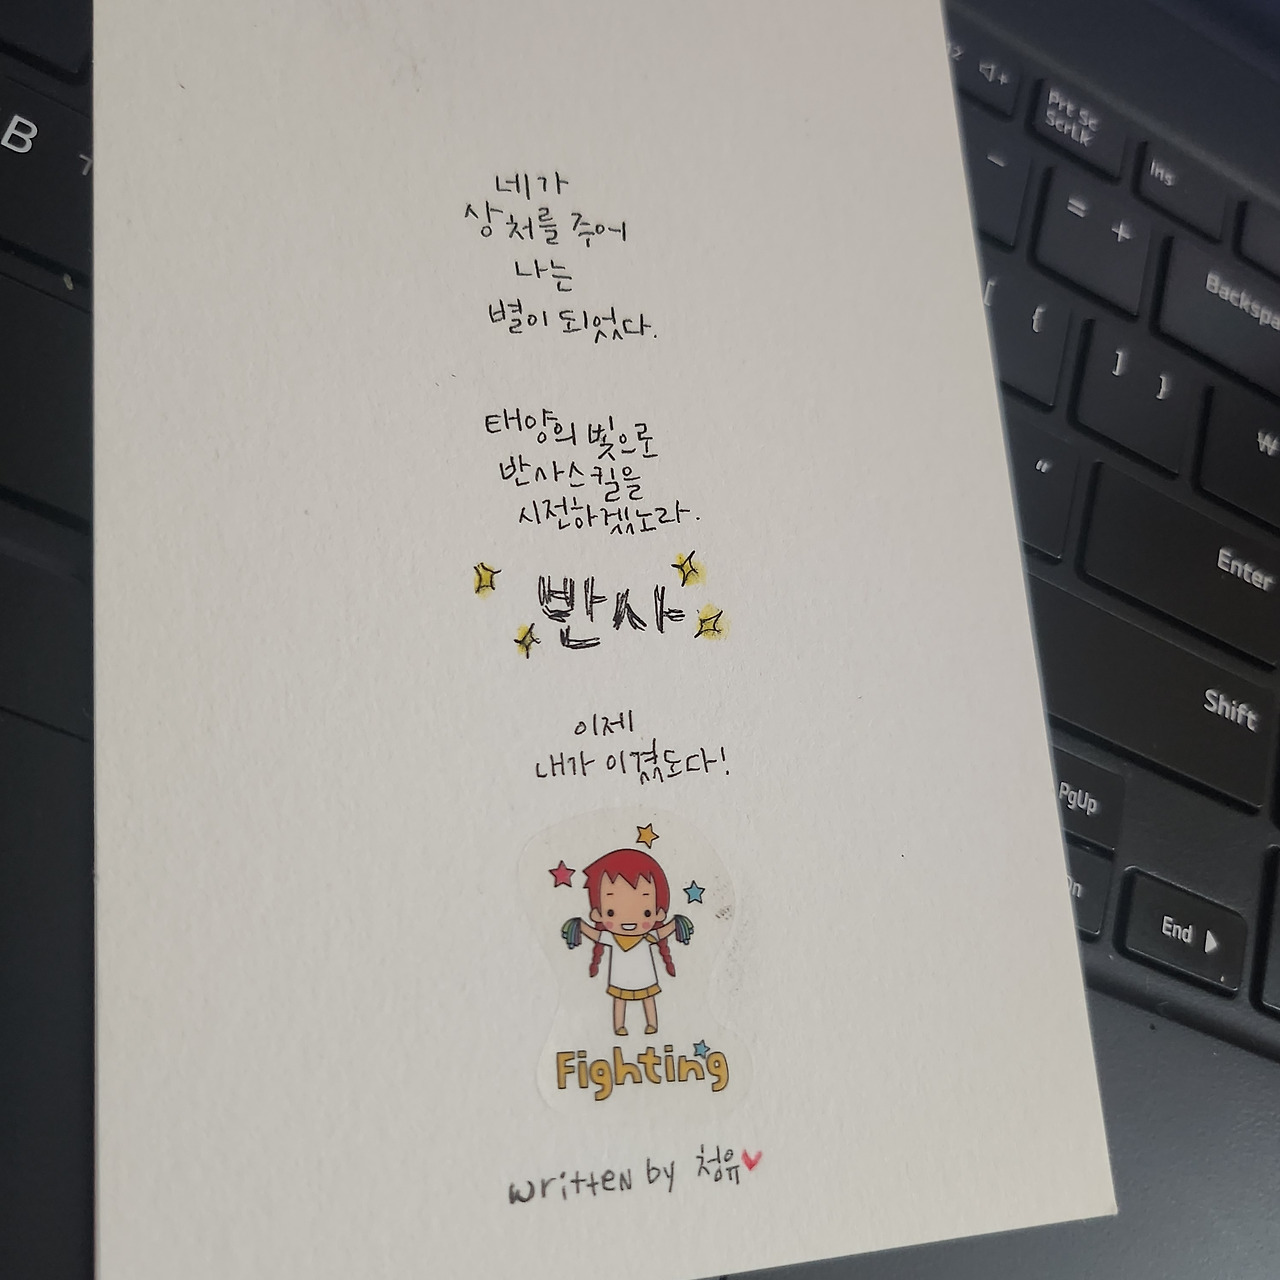 네가
상처를 주어
나는
별이 되었다.
태양의 빛으로
반사스킬을
시전하겠노라.
반사
이제
내가 이겼도다!
Fighting
written by 청유
B
Prt Sc
ScrLk
Ins
-
= +
Backspa
[ {
] }
₩
"
Enter
Shift
PgUp
End